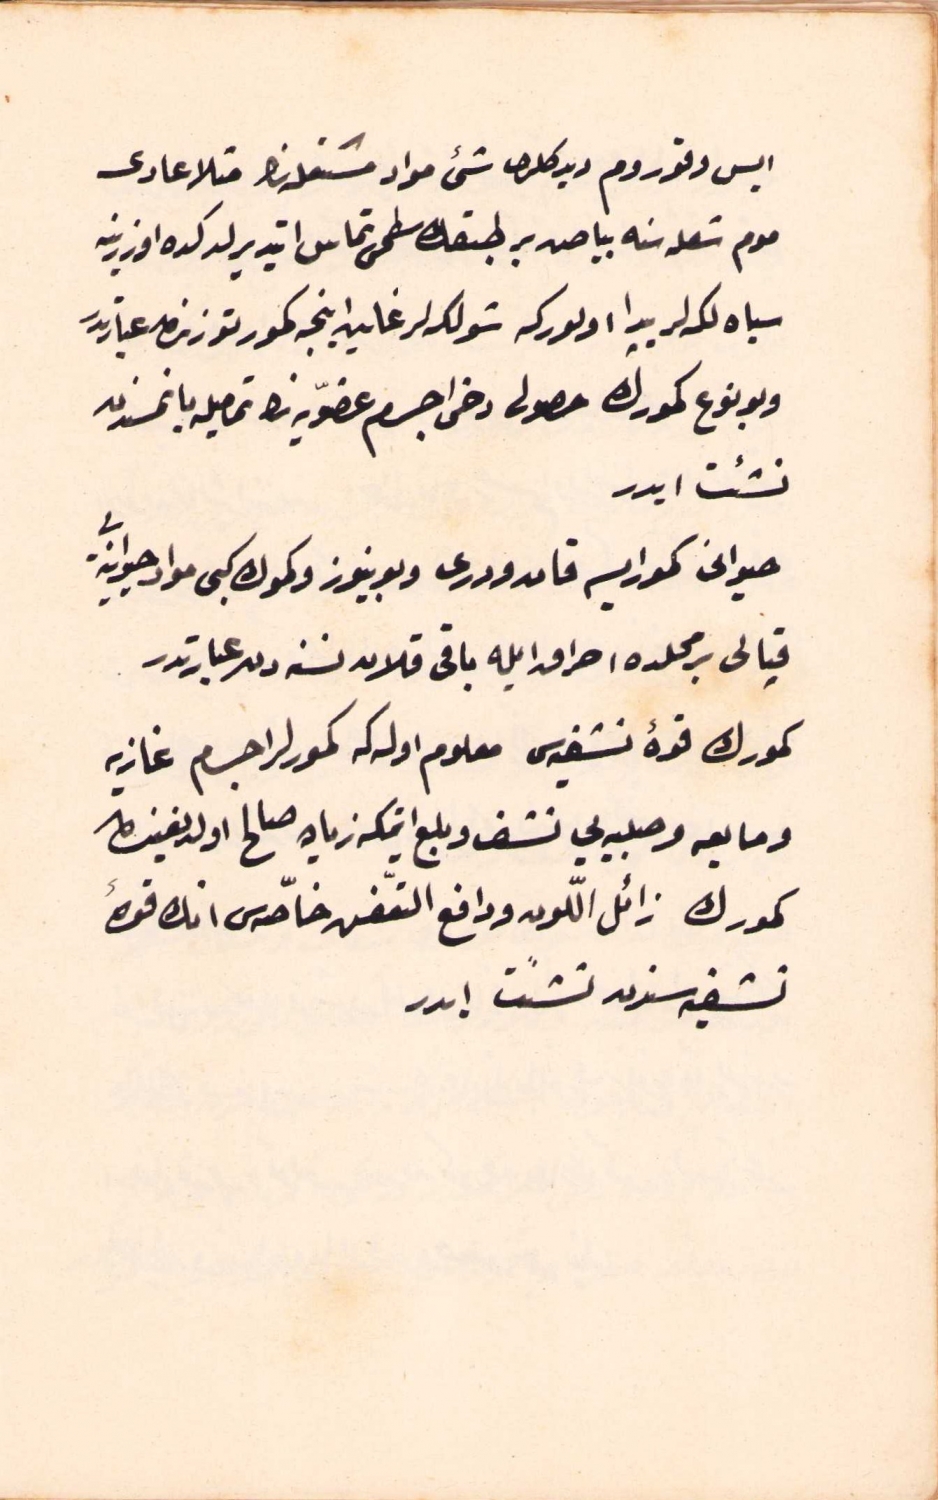 ایس و قوروم دیدكلری شئ مواد مشتعله‌نك مثلا عادی
موم شعله‌سنه بیاض بر طبقك سطحی تماس ایتدیریلدكده اوزرینه
سیاه لكه‌لر پیدا اولوركه شو لكه‌لر غایت اینجه كمور توزندن عبارتدر
و بو نوع كمورك حصولی دخی اجسام عضویه‌نك تمامیله یانمسندن
نشئت ایدر
حیوانی كمور ایسه قان و دری و بوینوز و كموك كبی مواد حیوانیه‌یی
قپالی بر محلده احراق ایله باقی قلان نسنه‌دن عبارتدر
كمورك قوهٔ نشفیه‌سی معلوم اوله‌كه كمورلر اجسام غازیه
و مایعه و صلبیه‌یی نشف و بلع ایتمكه زیاده صالح اولدیغندن
كمورك زائل اللّون و دافع التعفّن خاصّه‌سی انك قوهٔ
نشفیه‌سندن نشئت ایدر